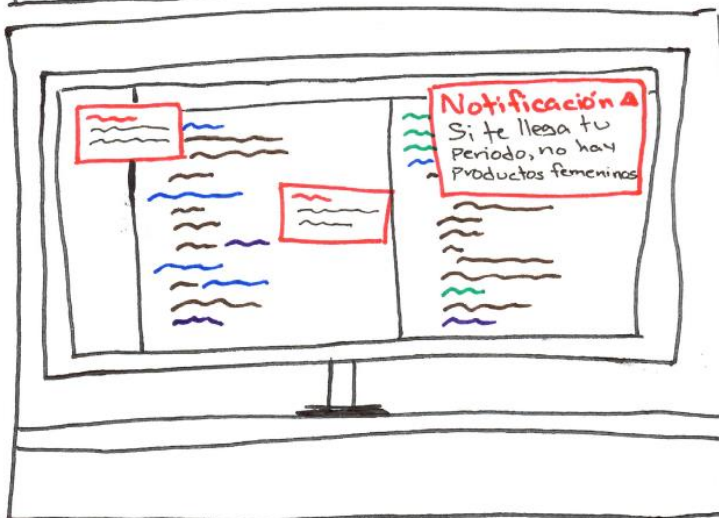 Notificación
Si te llega tu
periodo, no hay
productos femeninos